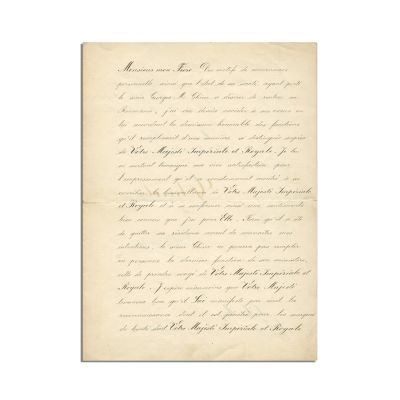 Monsieur mon Frère. Des motifs de convenance
personnelle ainsi que l'état de sa santé, ayant porté
le sieur Georges B. Ghica, à désirer de rentrer en
Roumanie, j'ai crû devoir accéder à ses vœux en
lui accordant la démission honorable des fonctions
qu'il remplissait d'une manière si distinguée auprès
de Votre Majesté Impériale et Royale. Je lui
ai surtout témoigné ma vive satisfaction pour
l'empressement qu'il a constamment montré à se
concilier la bienveillance de Votre Majesté Impériale
et Royale et à se conformer ainsi aux sentiments
bien connus que j'ai pour Elle. Bien qu'il a été
de quitter sa résidence avant de connaître mes
intentions, le sieur Ghica ne pourra pas remplir
en personne la dernière fonction de son ministère,
celle de prendre congé de Votre Majesté Impériale et
Royale. J'espère néanmoins que Votre Majesté
trouvera bon qu'il Lui manifeste par écrit la
reconnaissance dont il est pénétré pour les marques
de bonté dont Votre Majesté Impériale et Royale